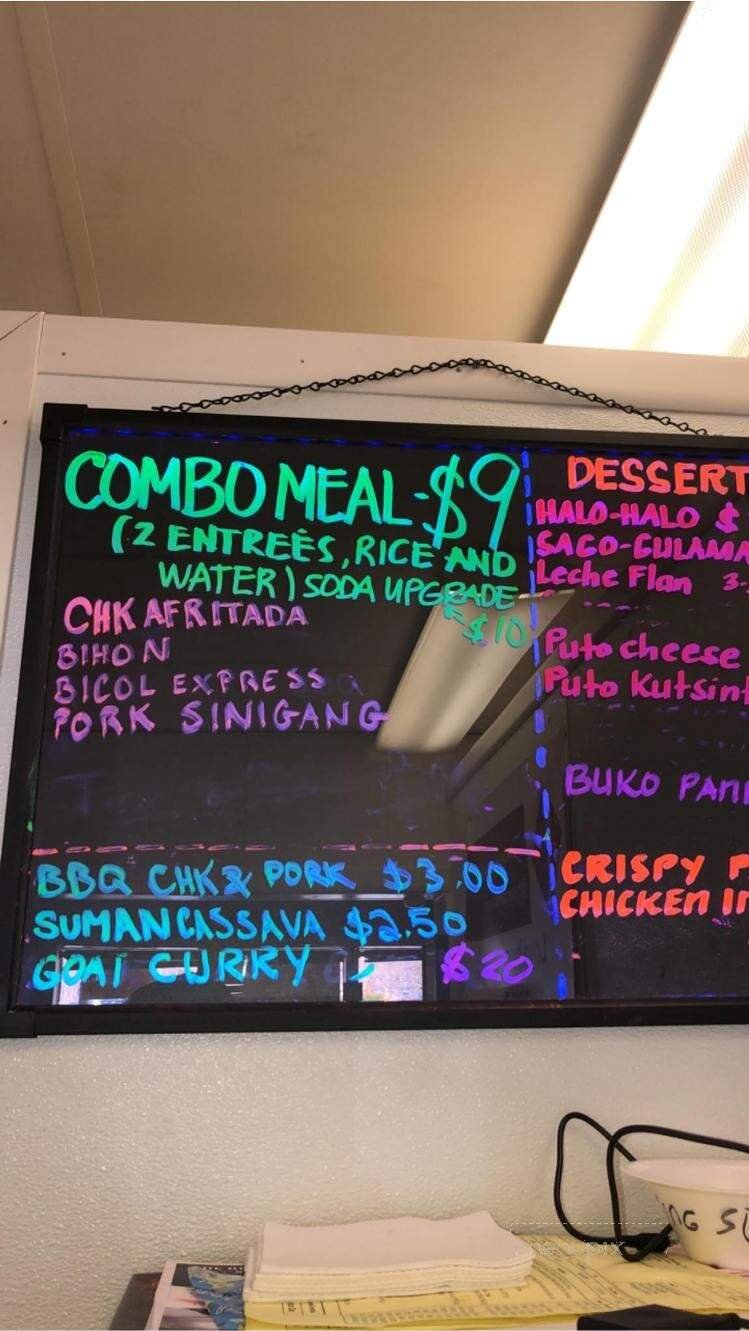 COMBO MEAL - $9
(2 ENTREÉS, RICE AND
WATER) SODA UPGRADE
= $10
CHK AFRITADA
BIHON
BICOL EXPRESS
PORK SINIGANG
BBQ CHK & PORK $3.00
SUMAN CASSAVA $2.50
GOAT CURRY $20
DESSERT
HALO-HALO $
SAGO-GULAMA
Leche Flan 3-
Puto cheese
Puto Kutsint
BUKO PAN
CRISPY P
CHICKEN IN
NG S